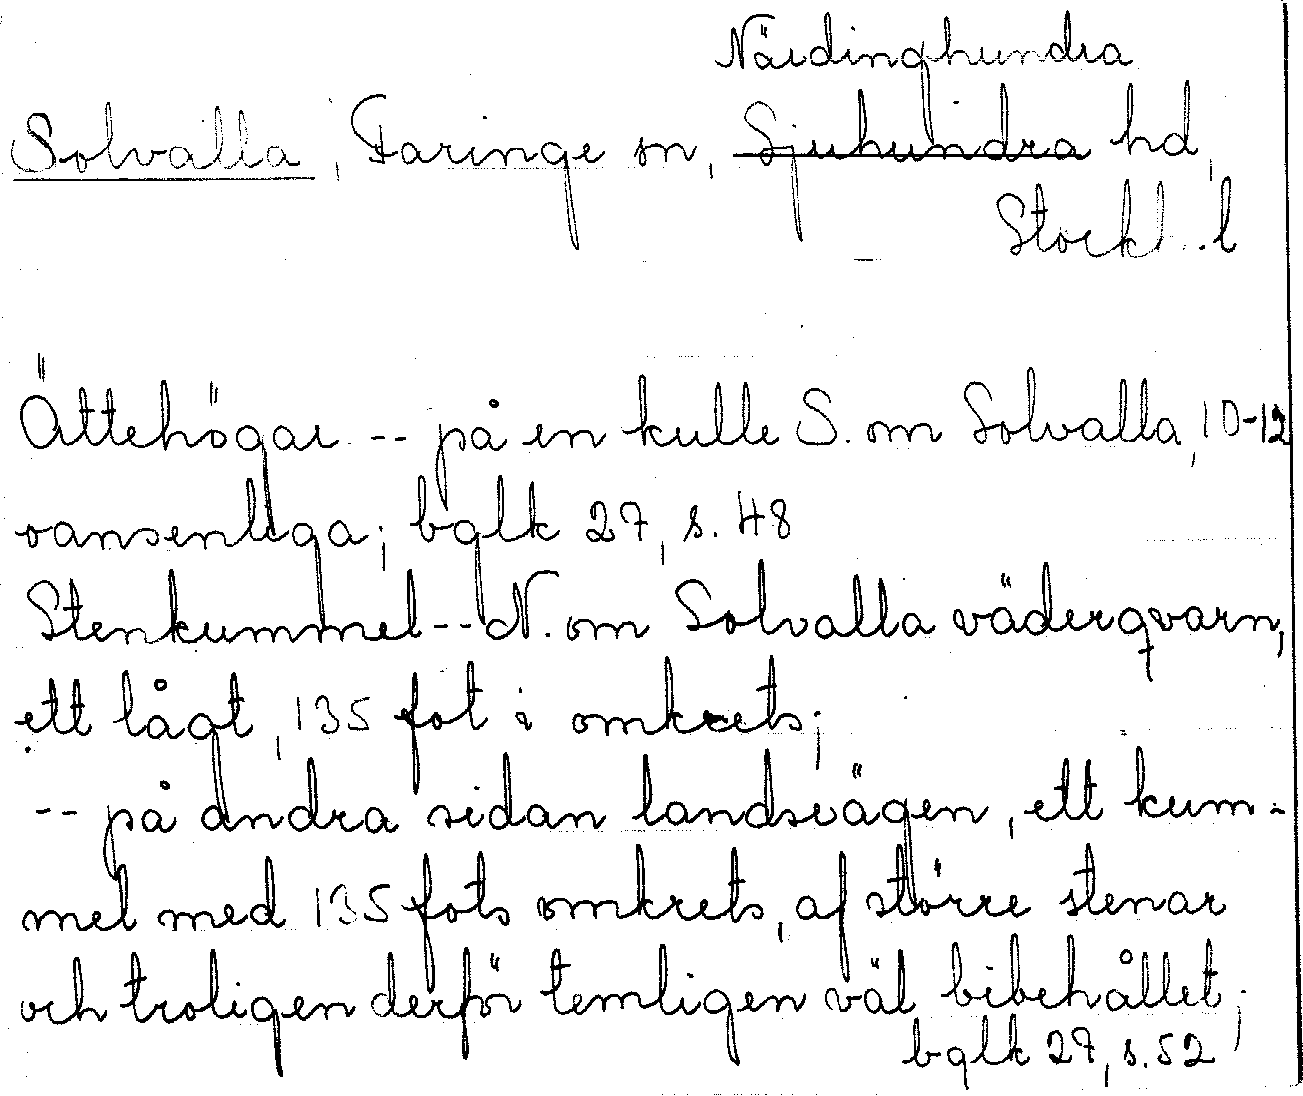 Närdinghundra
Solvalla, Faringe sn, Sjuhundra hd,
Stockh. l
Ättehögar -- på en kulle S. om Solvalla, 10-12
oansenliga; bglk 27, s. 48
Stenkummel -- N. om Solvalla väderqvarn,
ett lågt, 135 fot i omkrets;
-- på andra sidan landsvägen, ett kum-
mel med 135 fots omkrets, af större stenar
och troligen derför temligen väl bibehållet;
bglk 27, s. 52